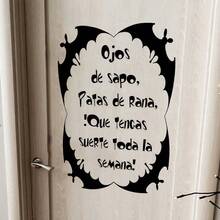 Ojos
de sapo,
Patas de Rana,
!Que tengas
suerte toda la
semana!